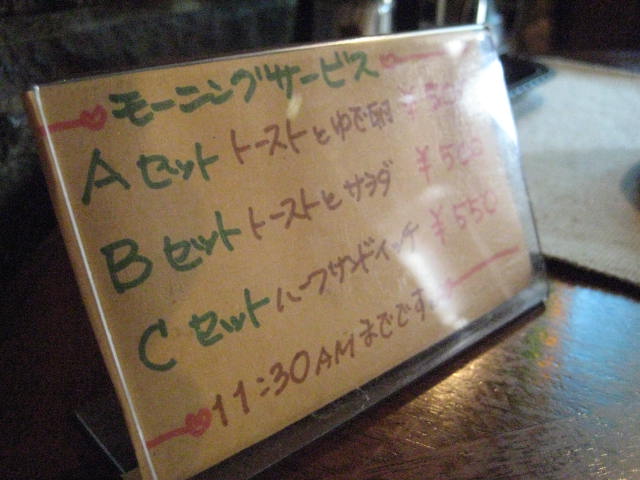 モーニングサービス
Aセット トーストとゆで卵
Bセット トーストとサラダ ¥500
Cセット ハーフサンドイッチ ¥550
11:30AMまでです